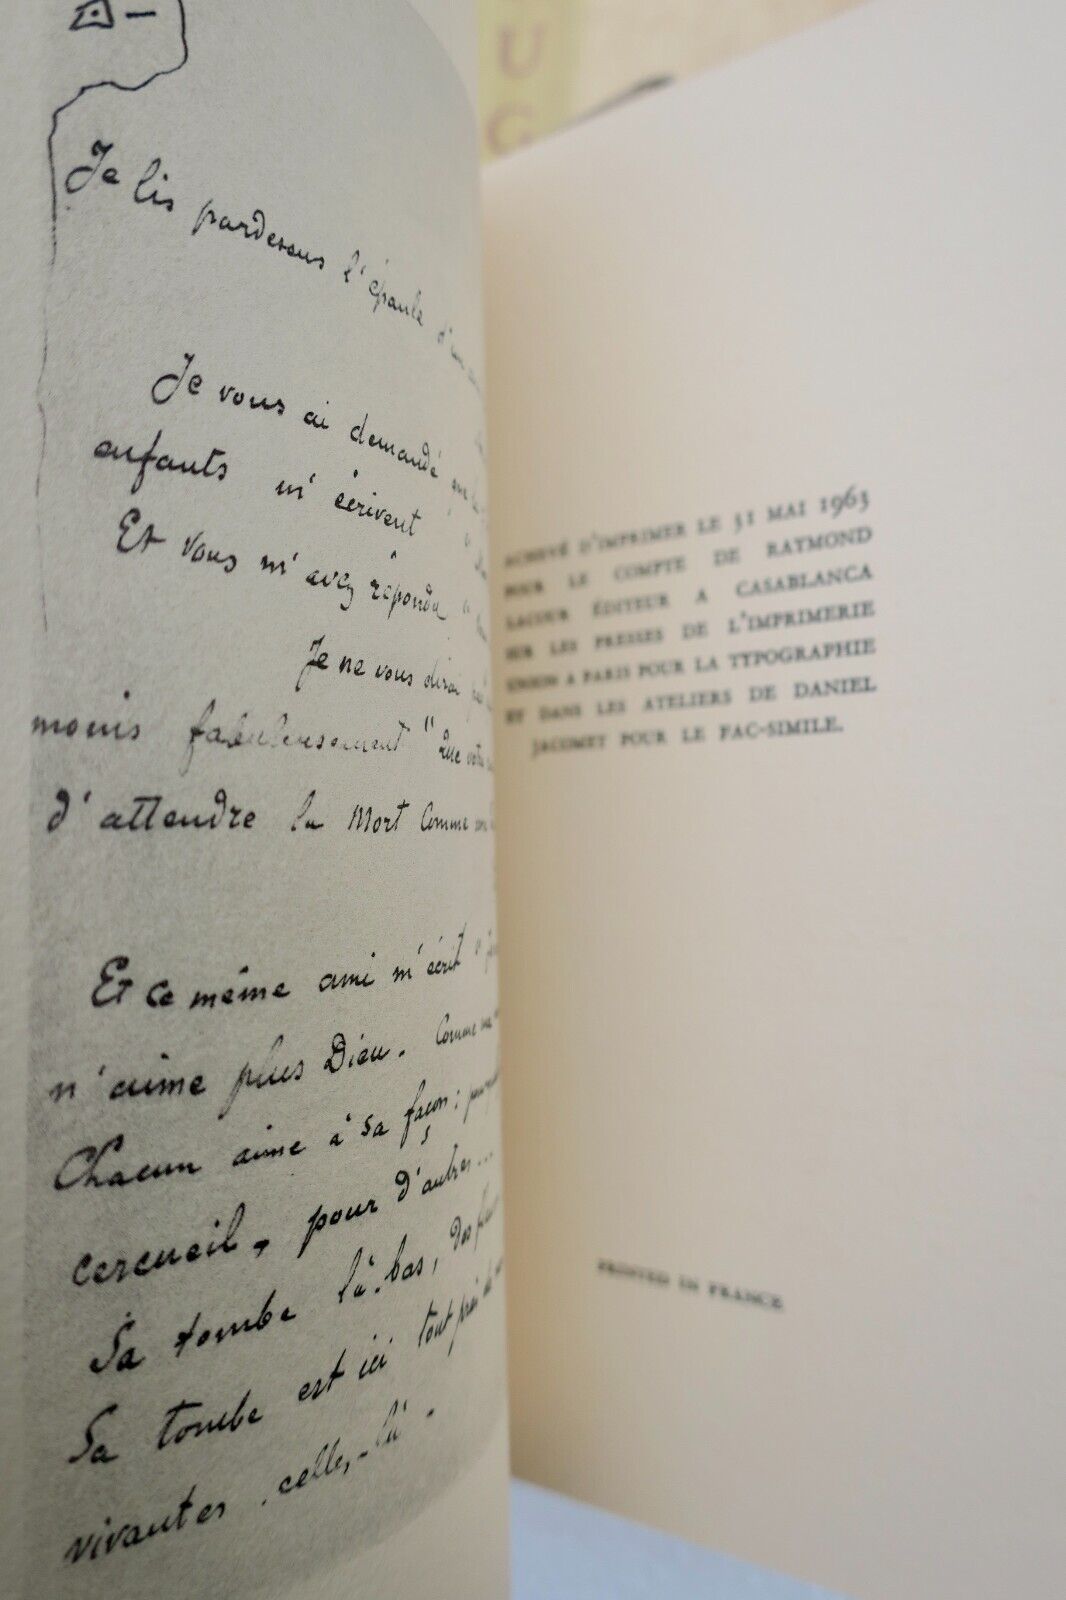 U
G
Je lis pardessus l'épaule d'un
Je vous ai demandé que
enfants m'écrivent
Et vous m'avez répondu
Je ne vous dirai pas
moins fabuleusement "Que votre
d'attendre la Mort Comme
Et ce même ami m'écrit "
n'aime plus Dieu. Comme une
Chacun aime à sa façon: pour
cercueil, pour d'autres...
Sa tombe là-bas, Des
Sa tombe est ici tout près de
vivantes celles-là.
ACHEVÉ D'IMPRIMER LE 31 MAI 1963
POUR LE COMPTE DE RAYMOND
LACOUR ÉDITEUR A CASABLANCA
SUR LES PRESSES DE L'IMPRIMERIE
UNION A PARIS POUR LA TYPOGRAPHIE
ET DANS LES ATELIERS DE DANIEL
JACOMET POUR LE FAC-SIMILE.
PRINTED IN FRANCE